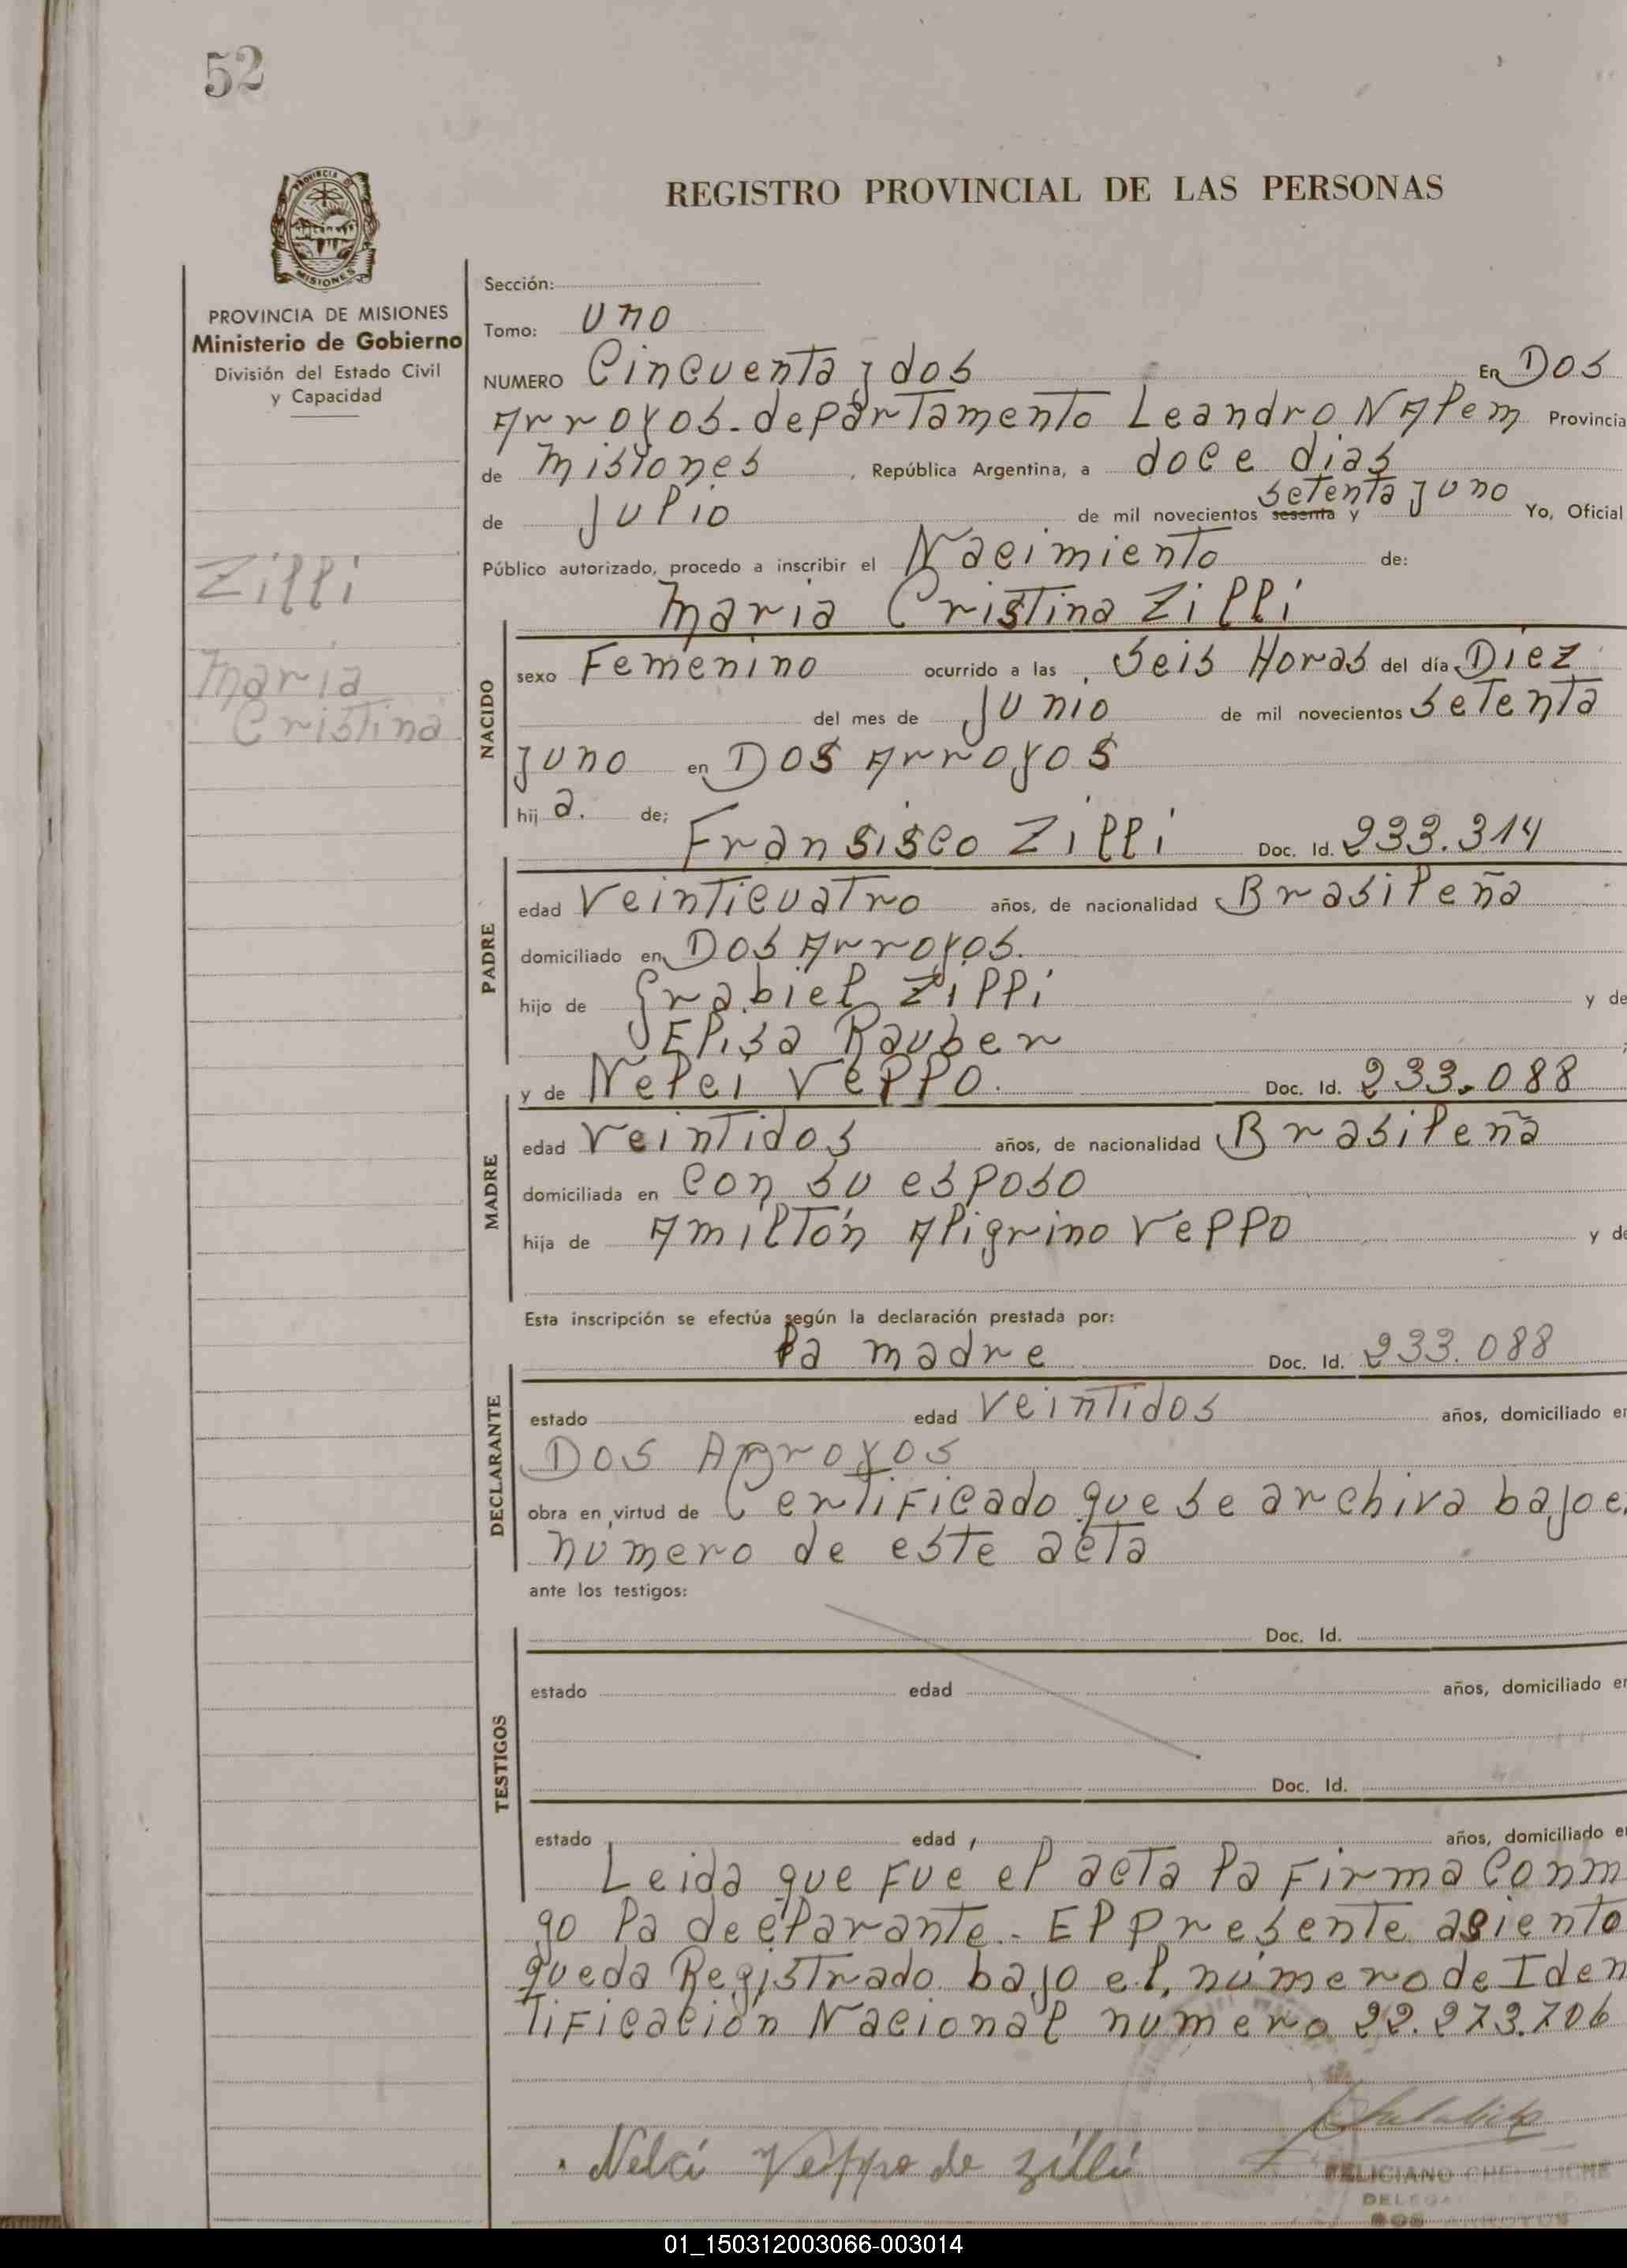 52
PROVINCIA DE
MISIONES
REGISTRO PROVINCIAL DE LAS PERSONAS
PROVINCIA DE MISIONES
Ministerio de Gobierno
División del Estado Civil
y Capacidad
Zilli
Maria
Cristina
Sección:
Tomo: Uno
NUMERO Cincuenta y dos En Dos
Arroyos-departamento Leandro N Alem Provincia
de Misiones, República Argentina, a doce dias
de Julio de mil novecientos sesenta setenta y uno Yo, Oficial
Público autorizado, procedo a inscribir el Nacimiento de:
Maria Cristina Zilli
NACIDO
sexo Femenino ocurrido a las Seis Horas del día Diez
del mes de Junio de mil novecientos Setenta
y uno en Dos Arroyos
hij a. de;
Fransisco Zilli Doc. Id. 233.314
PADRE
edad Veinticuatro años, de nacionalidad Brasileña
domiciliado en Dos Arroyos.
hijo de Grabiel Zilli y de
Elisa Rauber
y de Nelci Veppo. Doc. Id. 233.088
MADRE
edad Veintidos años, de nacionalidad Brasileña
domiciliada en con su esposo
hija de Amiltón Aligrino Veppo y de
Esta inscripción se efectúa según la declaración prestada por:
la madre Doc. Id. 233.088
DECLARANTE
estado edad Veintidos años, domiciliado en
Dos Arroyos
obra en virtud de Certificado que se archiva bajo e
numero de este acta
ante los testigos:
Doc. Id.
TESTIGOS
estado edad años, domiciliado en
Doc. Id.
estado edad años, domiciliado en
Leida que fue el acta la firma conm
go la declarante.- El presente asiento
queda Registrado bajo el número de Iden
tificación Nacional numero 22.273.706
Nelci Veppo de Zilli
FELICIANO
01_150312003066-003014